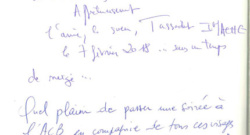 Affectueusement
l'amie, le
le 7 février 2018 ... sous un temps
de neige ...
Quel plaisir de passer une soirée à
l'ACB en compagnie de tous ces visages